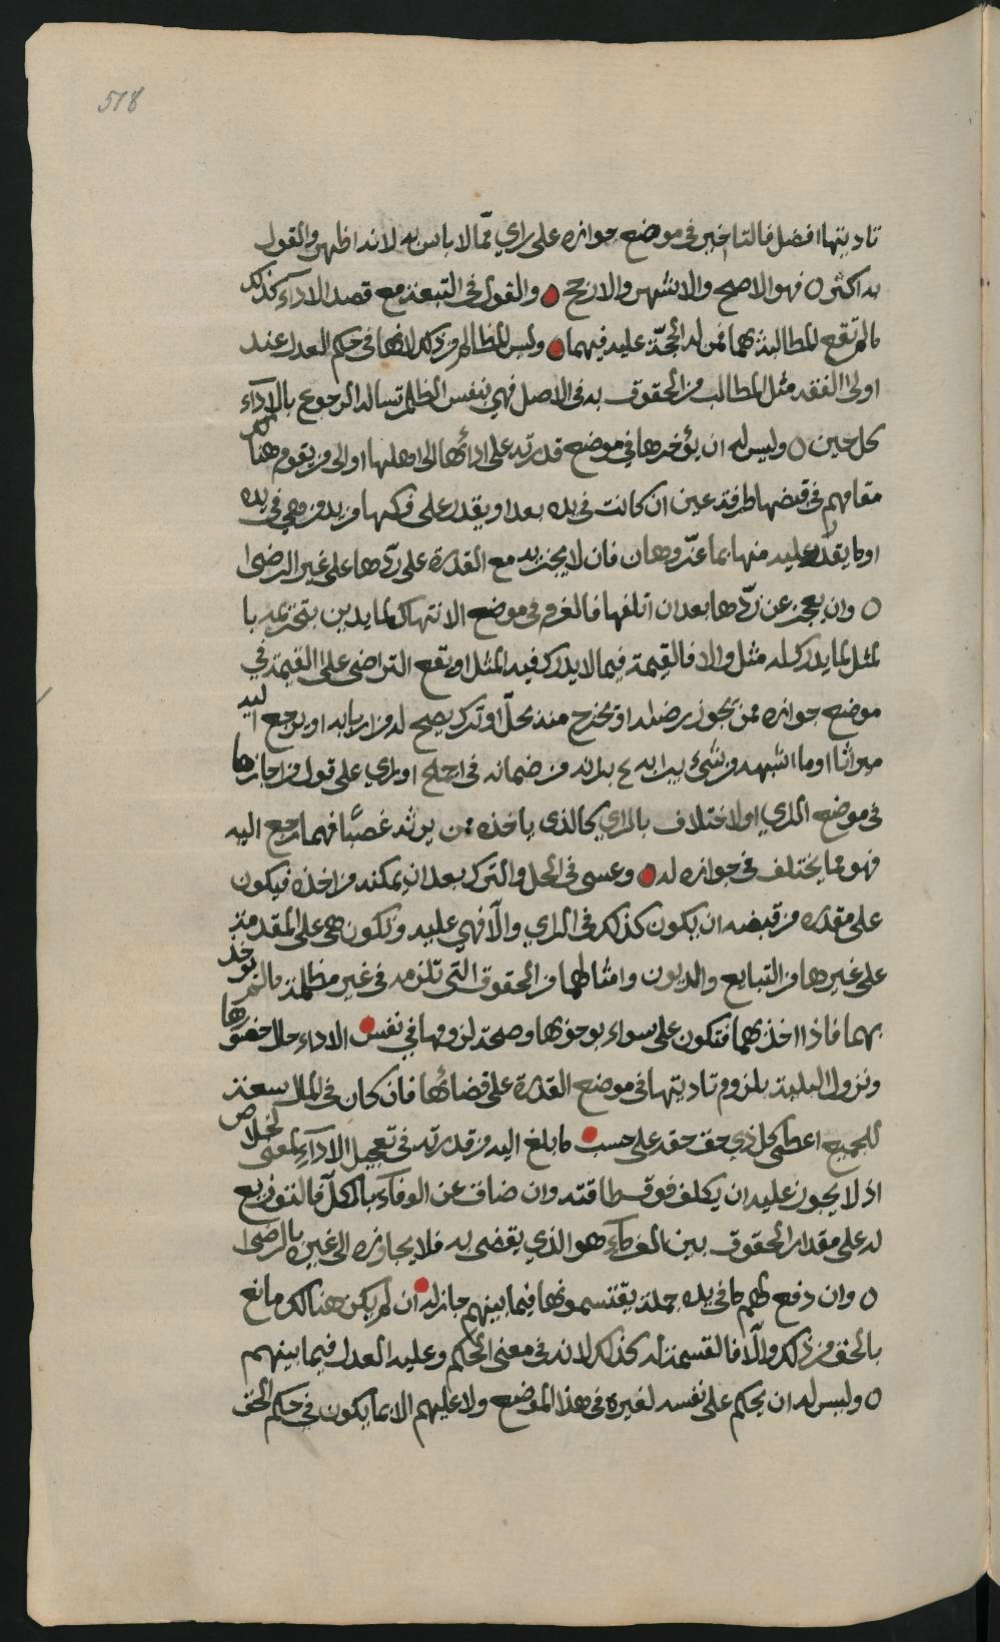 518
تاديتها افضل فالتاخير في موضع جوازه على راي ممّا لا باس به لانه اظهر والقول
به اكثر ○ فهو الاصح والاشهر والارجح والقول في التبعة مع قصد الادآء كذلك
ما لم تقع المطالبة بهما ممن له الحجّة عليه فيهما وليس المظالم من ذلك لانها في حكم العدل عند
اولى الفقه مثل المطالب من الحقوق به في الاصل فهي بنفس الظلم تساله الرجوع بالادآء
كل حين ○ وليس له ان يؤخرها في موضع قدرته على ادائها الى اهلها او الى من يقوم هنالك
مقامهم في قبضها طرفة عين ان كانت في يده بعد او يقدر على فكها من يد من هي في يده
او ما يقدر عليه منها بما عزّ وهان فان لا يجزيه مع القدرة على ردّها على غير الرضى
○ وان يعجز عن ردّها بعد ان اتلفها فالغرم في موضع الانتهاك لما يدين بتحريمه با
لمثل لما يدرك له مثل والا فالقيمة فيما لا يدرك فيه المثل او تقع التراضى على القيمة في
موضع جوازه ممن يجوز رضاه او يخرج منه بحلّ او ترك يصح له من اربابه او يرجع اليه
ميراثا او ما اشبهه من شيء يبرا به من ضمانه في اجماع او راي على قول من اجازها
في موضع الراي او لاختلاف بالراي كالذي ياخذه ممن يرثه غصبًا فهما رجع اليه
فهو مما يختلف في جوازه له وعسى في الحل والترك بعد ان يمكنه من اخذه فيكون
على مقدرة من قبضه ان يكون كذلك في الراي والّا فهي عليه وتكون هي على المقدمة
على غيرها من التبايع والديون وامثالها من الحقوق التي تلزمه في غير مظلمة ما لم يوخذ
بهما فاذا اخذ بهما فتكون على سواء بوجوبها وصحة لزومها في نفس الاداء حال حضورها
ونزول البلية بلزوم تاديتها في موضع القدرة على قضائها فان كان في المال سعة
للجميع اعطى كل ذي حق حقه على حسب ما بلغ اليه من قدرته في تعجيل الادآء لمعنى الخلاص
اذ لا يجوز عليه ان يكلف فوق طاقته وان ضاق عن الوفآء بالكلّ فالتوزيع
له على مقدار الحقوق بين الغرمآء هو الذي يقضى به فلا يجاوزه الى غيره بالرضى
○ وان دفع لهم ما في يده جملة يقتسمونها فيما بينهم جاز له ان لم يكن هنالك مانع
بالحق من ذلك والّا فالقسمة له كذلك لانه في معنى الحكم وعليه العدل فيما بينهم
○ وليس له ان يحكم على نفسه لغيره في هذا الموضع ولا عليهم الا بما يكون في حكم الحق